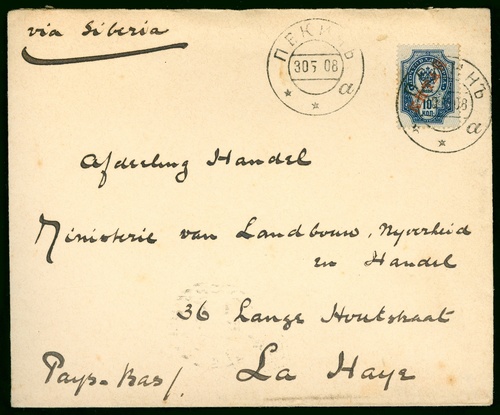 via Siberia
ПЕКИНЪ
30 5 08
а
10
КОП.
а
Afdeeling Handel
Ministerie van Landbouw, Nyverheid
en Handel
36 Lange Houtstraat
Pays-Bas/. La Haye